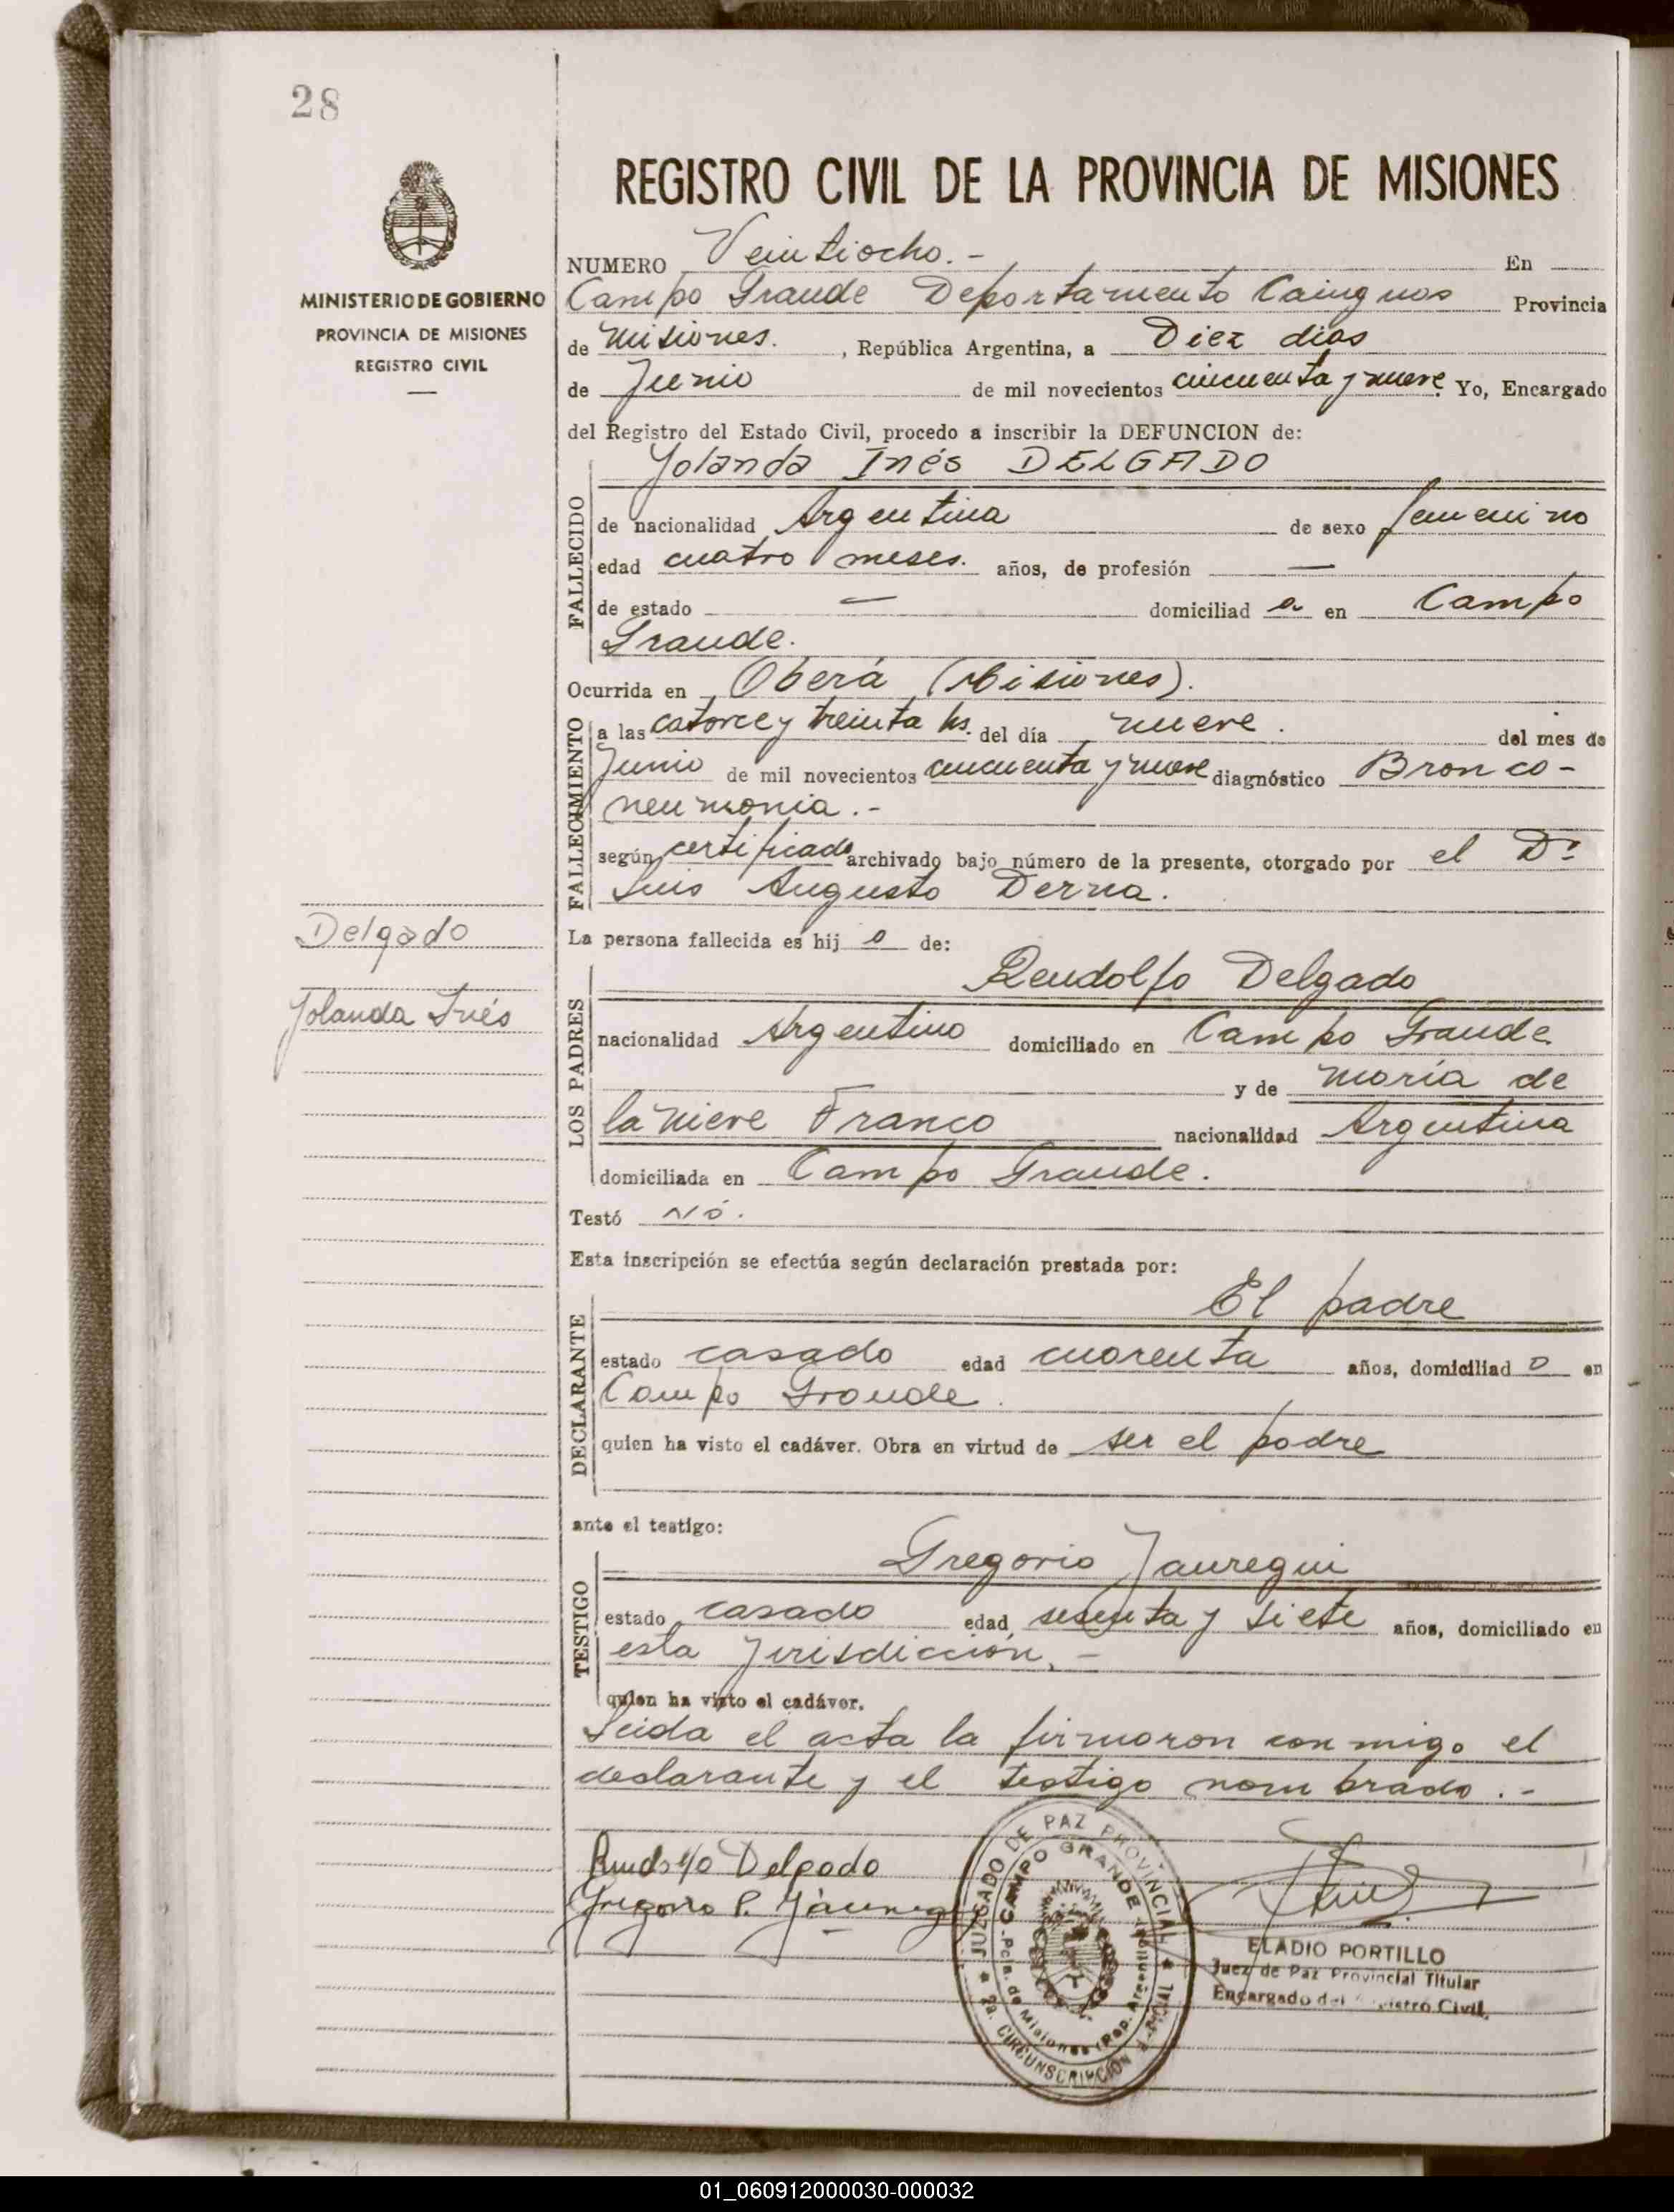 28
MINISTERIO DE GOBIERNO
PROVINCIA DE MISIONES
REGISTRO CIVIL
REGISTRO CIVIL DE LA PROVINCIA DE MISIONES
NUMERO Veintiocho.- En
Campo Grande Departamento Cainguas Provincia
de Misiones. , República Argentina, a Diez dias
de Junio de mil novecientos cincuenta y nueve. Yo, Encargado
del Registro del Estado Civil, procedo a inscribir la DEFUNCION de:
Yolanda Inés DELGADO
FALLECIDO
de nacionalidad Argentina de sexo femenino
edad cuatro meses. años, de profesión —
de estado — domiciliad a en Campo
Grande.
Ocurrida en Oberá (Misiones).
FALLECIMIENTO
a las catorce y treinta hs. del día nueve. del mes de
Junio de mil novecientos cincuenta y nueve diagnóstico Bronco-
neumonia.-
según certificado archivado bajo número de la presente, otorgado por el Dr
Luis Augusto Derna.
Delgado
Yolanda Inés
La persona fallecida es hij a de:
LOS PADRES
Rudolfo Delgado
nacionalidad Argentino domiciliado en Campo Grande.
y de Maria de
la Nieve Franco nacionalidad Argentina
domiciliada en Campo Grande.
Testó Nó.
Esta inscripción se efectúa según declaración prestada por:
DECLARANTE
El padre
estado casado edad cuarenta años, domiciliad o en
Campo Grande.
quien ha visto el cadáver. Obra en virtud de ser el padre
ante el testigo:
TESTIGO
Gregorio Jauregui
estado casado edad sesenta y siete años, domiciliado en
esta Jurisdiccion.-
quien ha visto el cadáver.
Leida el acta la firmaron conmigo el
declarante y el testigo nombrado.-
Delgado
Gregorio P. Jáuregui
JUZGADO DE PAZ PROVINCIAL
CAMPO GRANDE
Pcia. de Misiones (Rep. Argentina)
2a. CIRCUNSCRIPCION JUDICIAL
ELADIO PORTILLO
Juez de Paz Provincial Titular
Encargado del Registro Civil.
01_060912000030-000032